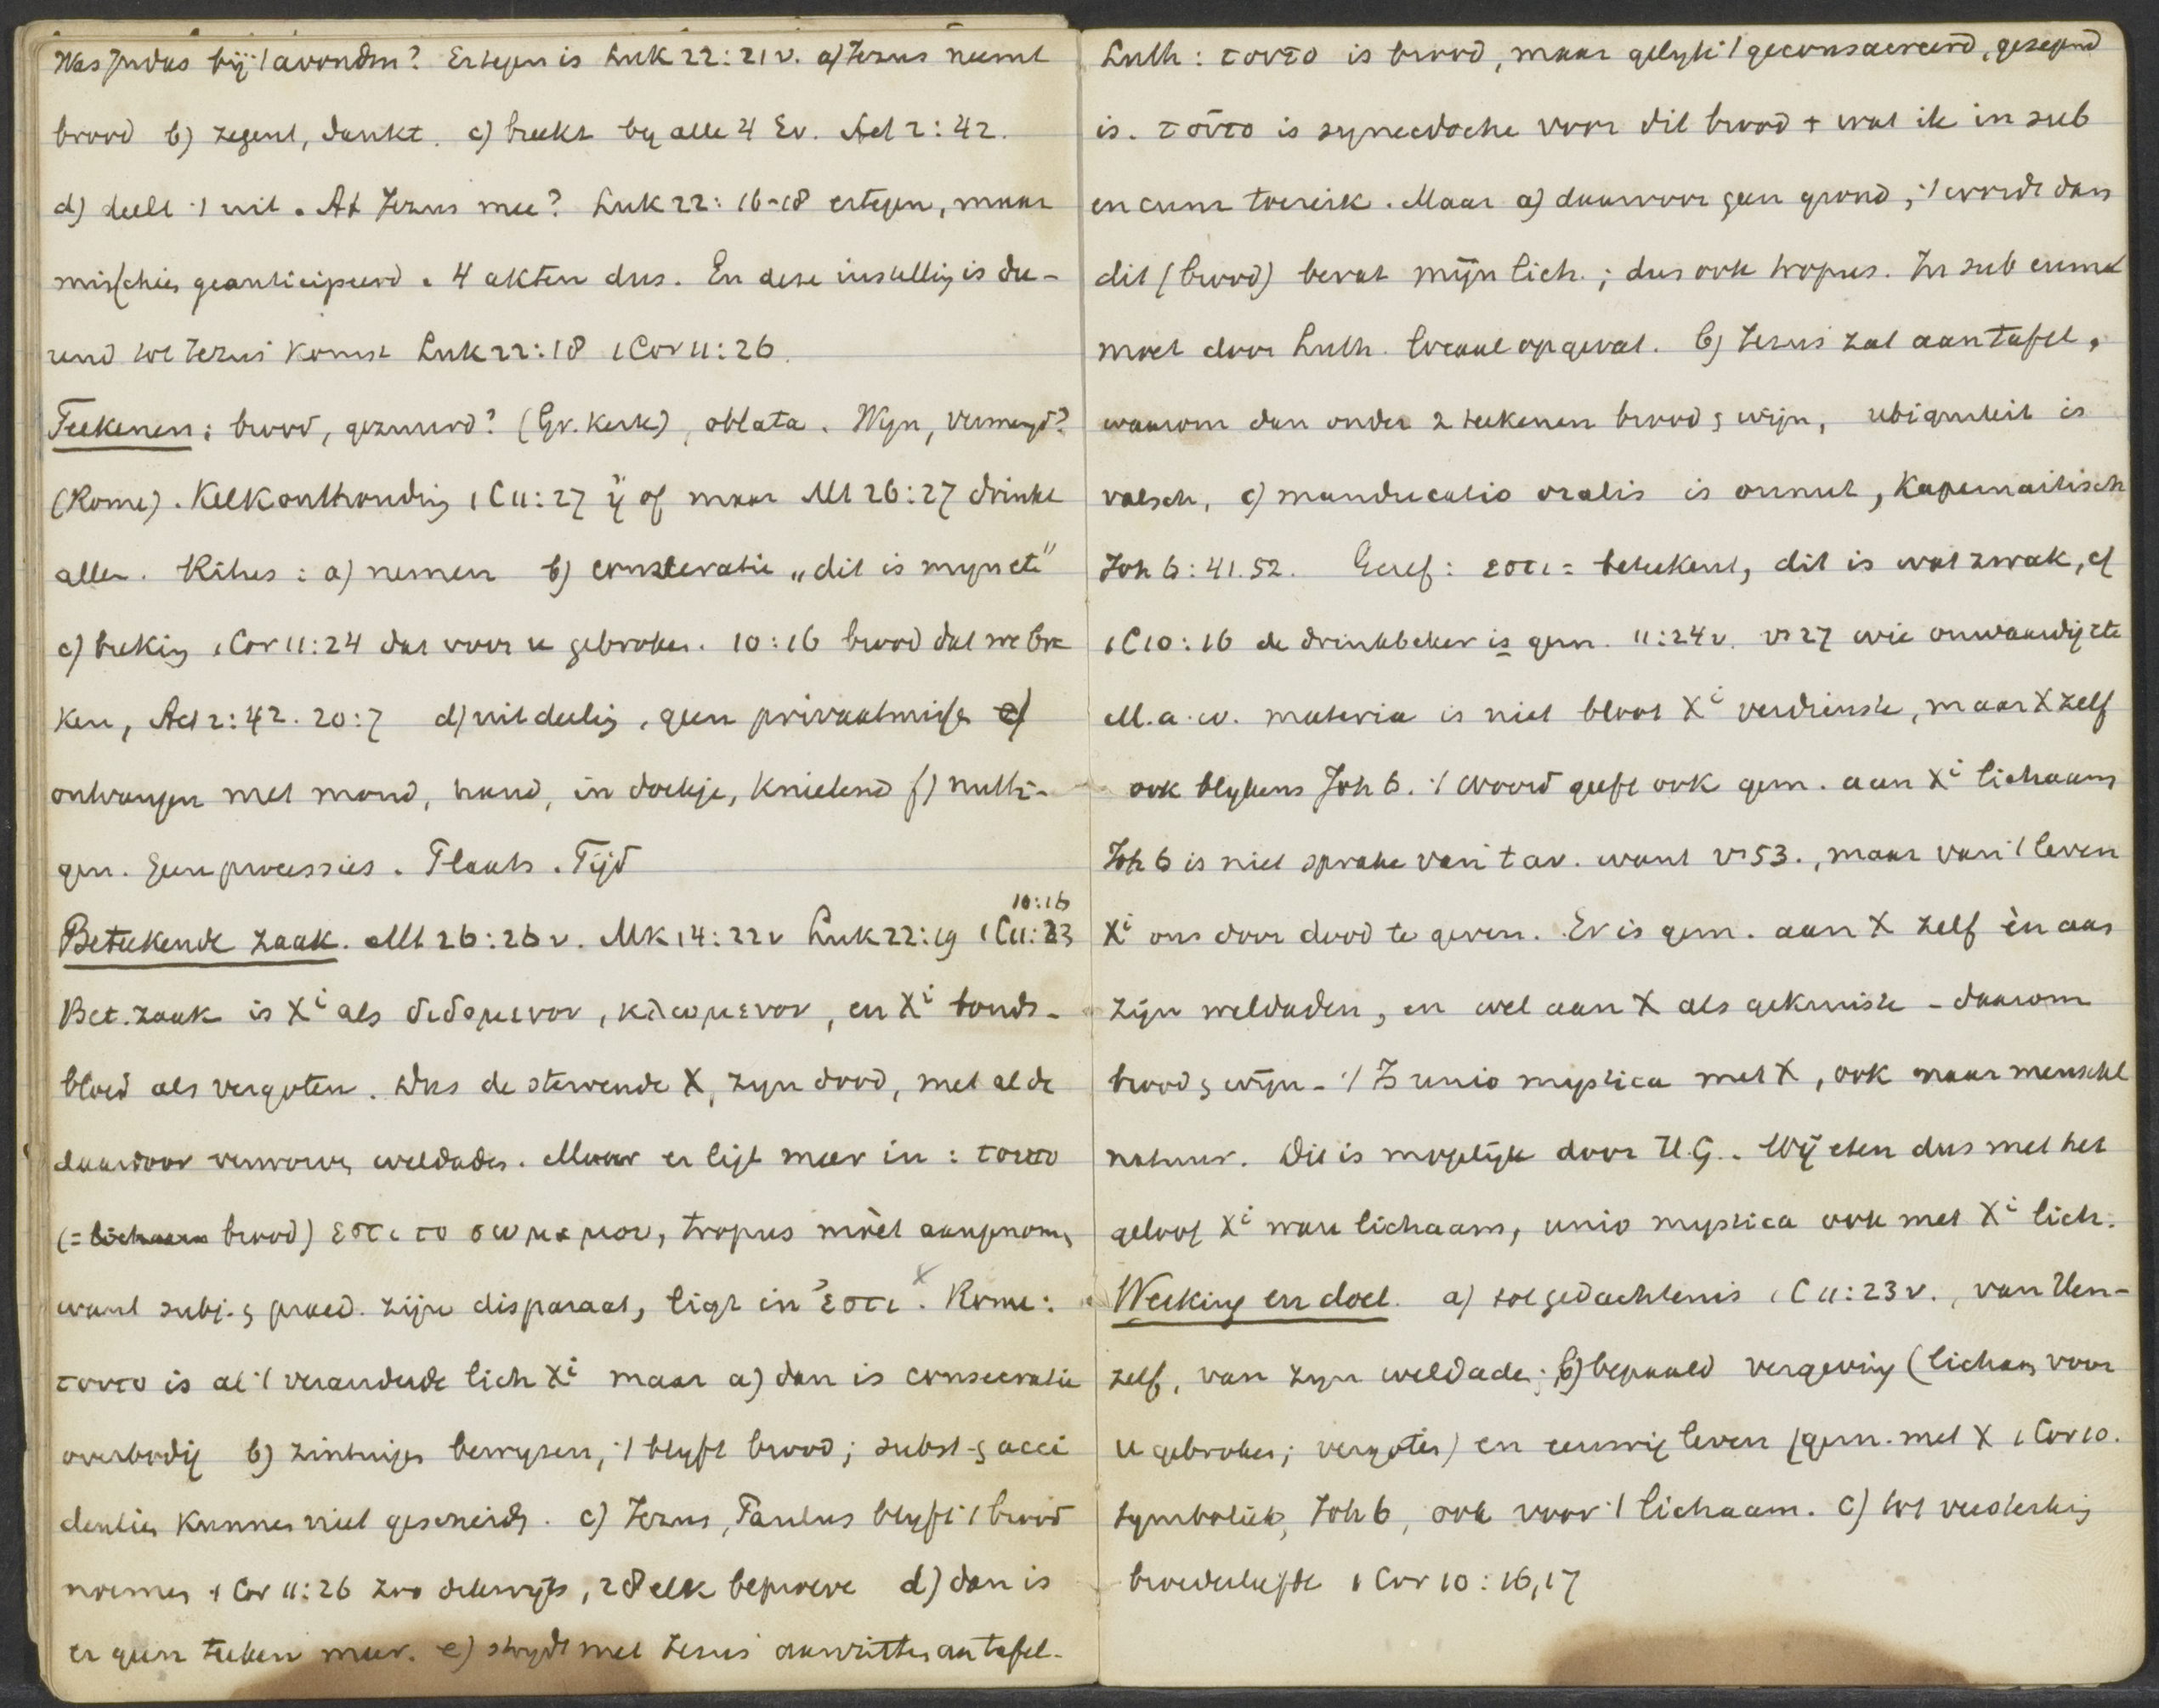 Was Judas bij 't avondm? Ertegen is Luk 22:21v. a) Jezus neemt
brood b) zegent, dankt. c) breekt by alle 4 Ev. Act 2:42.
d) deelt 't uit. At Jezus mee? Luk 22:16-18 ertegen, maar
misschien geanticipeerd. 4 akten dus. En deze instelling is du-
rend tot Jezus' komst Luk 22:18 1 Cor 11:26.
Teekenen: brood, gezuurd? (Gr. Kerk), oblata. Wijn, vermengd?
(Rome). Kelkonthouding 1 C 11:27 ἤ of maar Mt 26:27 drinkt
allen. Ritus: a) nemen b) consecratie „dit is mijn etc"
c) breking 1 Cor 11:24 dat voor u gebroken. 10:16 brood dat we bre
ken, Act 2:42. 20:7 d) uitdeeling, geen privaatmisse e)
ontvangen met mond, hand, in doekje, knielend f) nutti-
gen. Geen processies. Plaats. Tijd
Beteekende zaak. Mt 26:26v. Mk 14:22v Luk 22:19 1 C 11:23 10:16
Bet. zaak is Xi als διδομενον, κλωμενον, en Xi bonds-
bloed als vergoten. Dus de stervende X, zijn dood, met al de
daardoor verworven weldaden. Maar er ligt meer in: τουτο
(= lichaam brood) εστι το σωμα μου, tropus moet aangenomen
want subj. & praed. zijn disparaat, ligt in ἐστι x. Rome:
τουτο is al 't veranderde lich Xi maar a) dan is consecratie
overbodig b) zintuigen bewijzen, 't blijft brood; subst. & acci
dentien kunnen niet gescheiden. c) Jezus, Paulus blijft 't brood
noemen 1 Cor 11:26 zoo dikwijls, 28 elk beproeve d) dan is
er geen teeken meer. e) strijdt met Jezus' aanzitten aan tafel.
Luth: τουτο is brood, maar gelijk 't geconsacreerd, gezegend
is. τουτο is synecdoche voor dit brood + wat ik in sub
en cum toereik. Maar a) daarvoor geen grond, 't wordt dan
dit (brood) bevat mijn lich.; dus ook tropus. In sub cum
moet door Luth. locaal opgevat. b) Jezus zat aan tafel,
waarom dan onder 2 teekenen brood & wijn, ubiquiteit is
valsch, c) manducatio oralis is onnut, Kapernaitisch
Joh 6:41.52. Geref: εστι = beteekent, dit is wat zwak, cf
1 C 10:16 de drinkbeker is gem. 11:24v. vs 27 wie onwaardig etc
M.a.w. materia is niet bloot Xi verdienste, maar X zelf
ook blijkens Joh 6. 't Woord geeft ook gem. aan Xi lichaam
Joh 6 is niet sprake van 't av. want vs 53., maar van 't leven
Xi ons door dood te geven. Er is gem. aan X zelf èn aan
zijn weldaden, en wel aan X als gekruiste - daarom
brood & wijn - 't Is unio mystica met X, ook naar menschel
natuur. Dit is mogelijk door H.G. Wij eten dus met het
geloof Xi ware lichaam, unio mystica ook met Xi lich.
Werking en doel. a) tot gedachtenis 1 C 11:23v., van Hem-
zelf, van zijn weldaden; b) bepaald vergeving (lichaam voor
u gebroken; vergoten) en eeuwig leven (gem. met X 1 Cor 10.
symboliek, Joh 6, ook voor 't lichaam. c) tot versterking
broederliefde 1 Cor 10:16,17